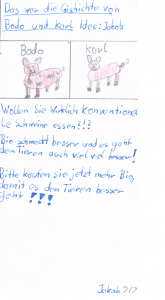 Das war die Gischichte von
Bodo und Karl Idee: Jakob
Bodo Karl
Wollen Sie Wirklich Konventionel
le Schweine essen?!?
Bio schmeckt besser und es geht
den Tieren auch viel viel besser!
Bitte kaufen sie jetzt mehr Bio,
damit es den Tieren besser
geht !!!
Jakob